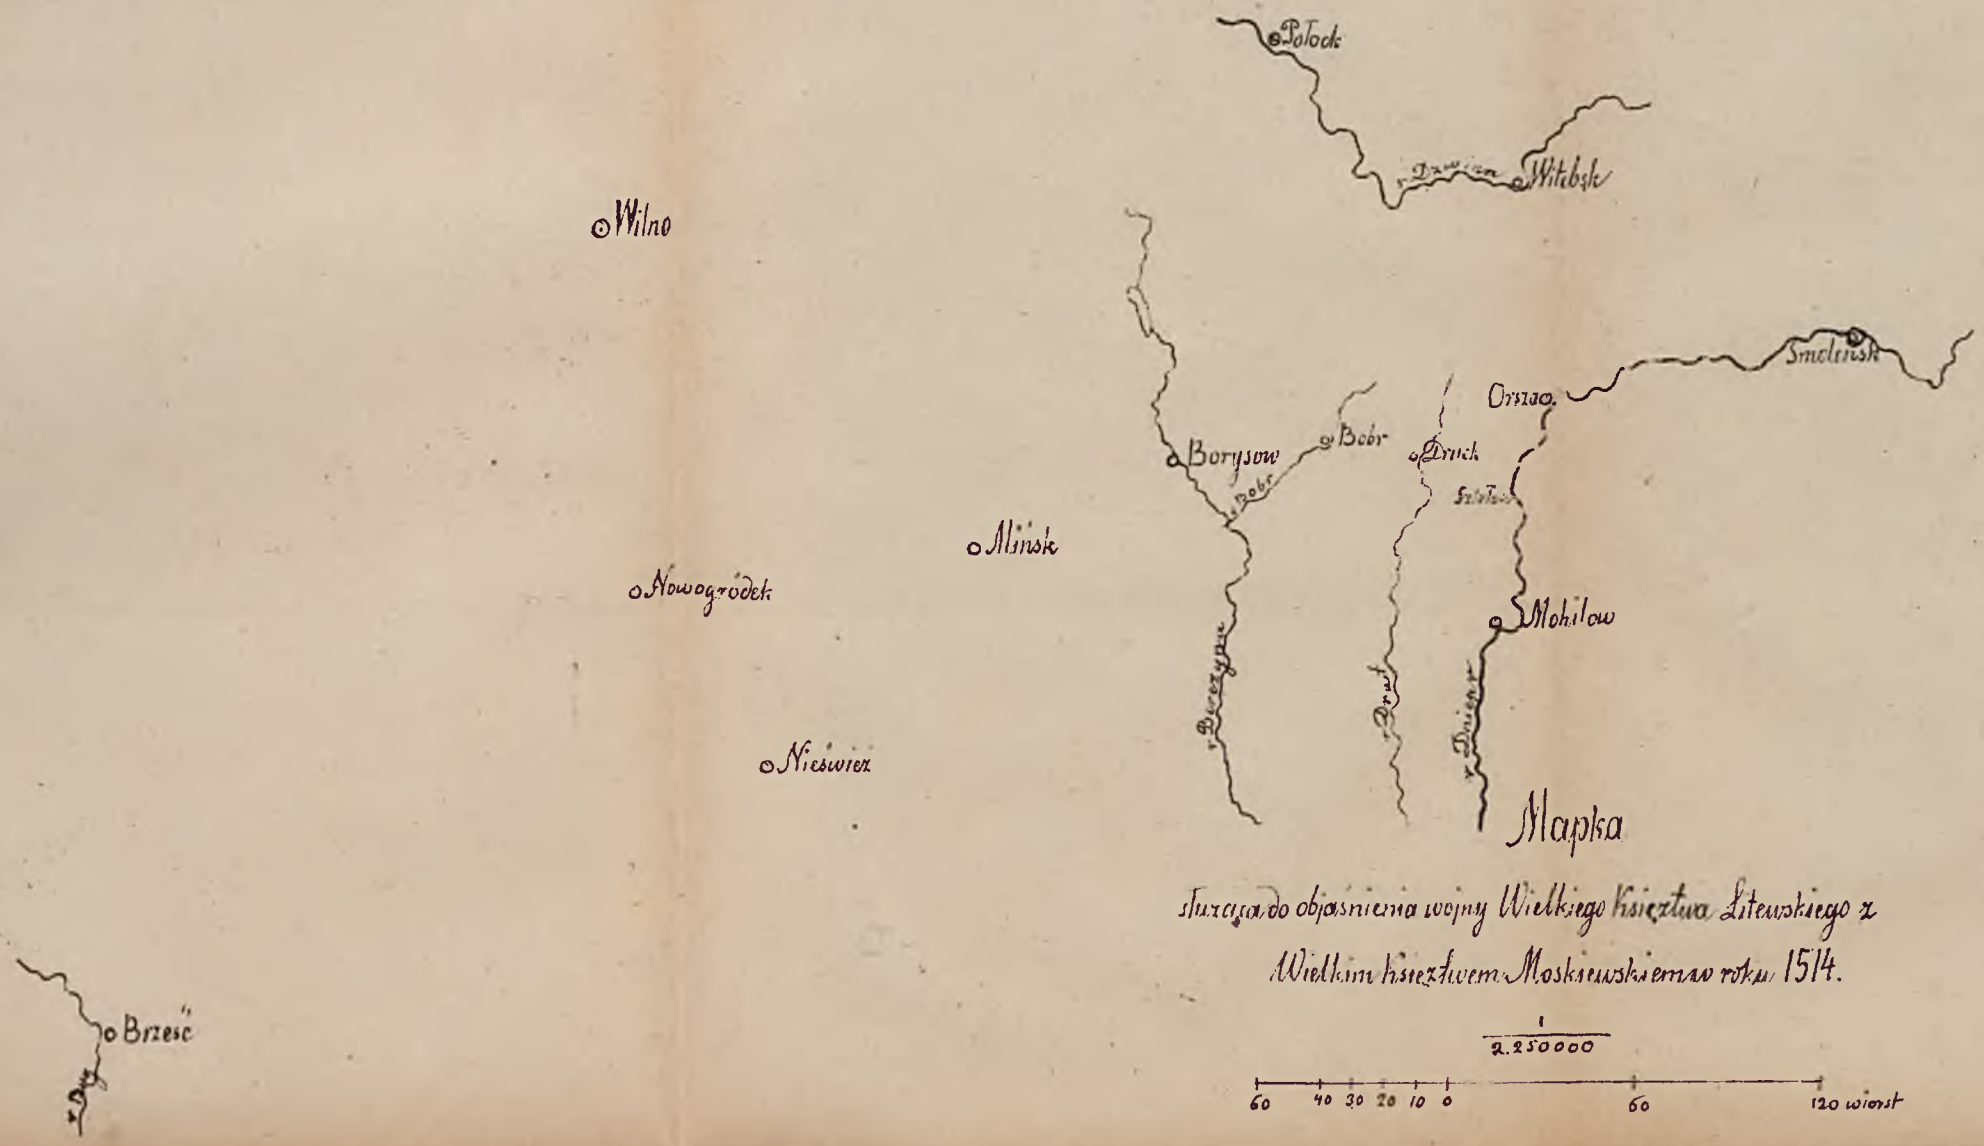 Połock
r. Dzwina
Witebsk
Wilno
Smoleńsk
Orsza.
Bobr
Borysow
Druck
r. Bobr
Mińsk
Nowogródek
Mohilow
r. Berezyna
r. Druć
r. Dniepr
Nieśwież
Mapka
służąca do objaśnienia wojny Wielkiego Księztwa Litewskiego z
Wielkim Księztwem Moskiewskiem w roku 1514.
Brześć
r. Bug
1
2.250000
60 40 30 20 10 0 60 120 wiorst